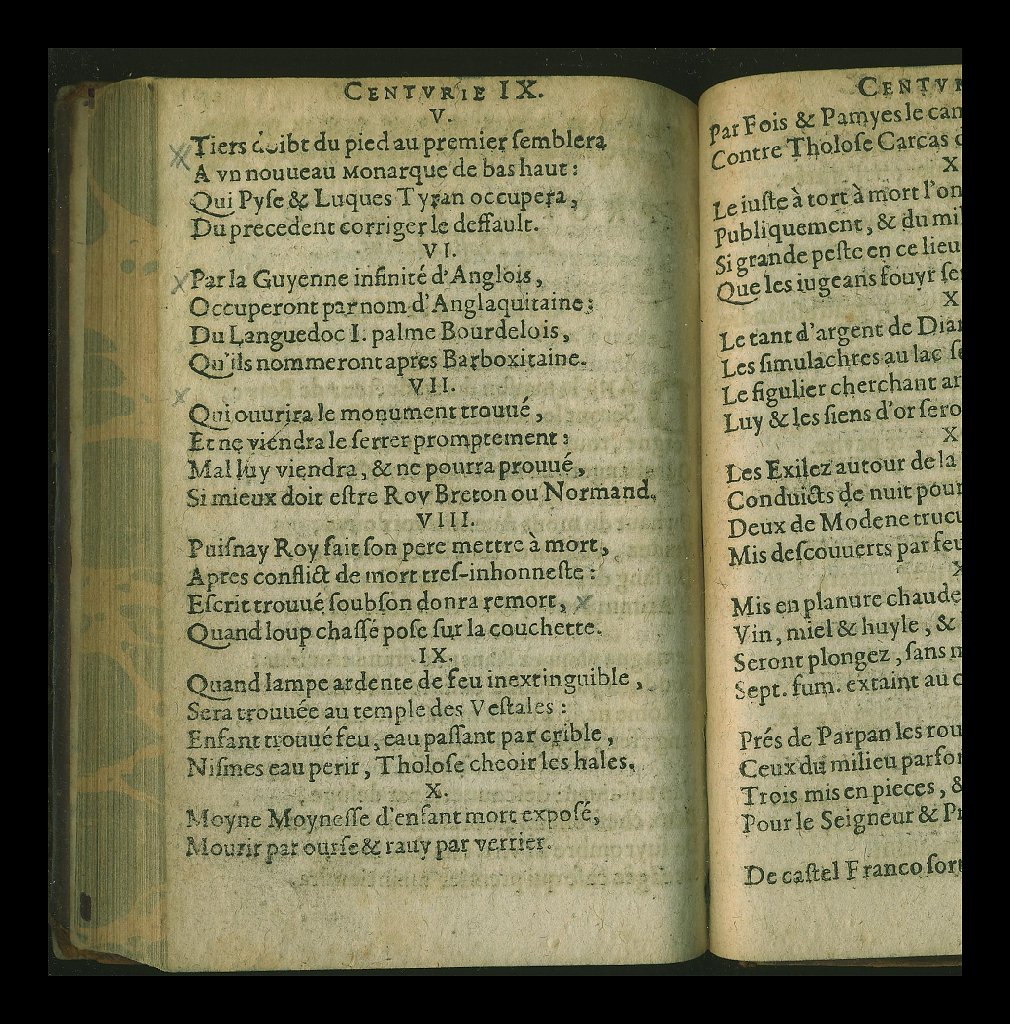 CENTVRIE IX.
V.
Tiers doibt du pied au premier semblera
A vn nouueau Monarque de bas haut:
Qui Pyse & Luques Tyran occupera,
Du precedent corriger le deffault.
VI.
Par la Guyenne infinité d'Anglois,
Occuperont par nom d'Anglaquitaine:
Du Languedoc I. palme Bourdelois,
Qu'ils nommeront apres Barboxitaine.
VII.
Qui ouurira le monument trouué,
Et ne viendra le serrer promptement:
Mal luy viendra, & ne pourra prouué,
Si mieux doit estre Roy Breton ou Normand.
VIII.
Puisnay Roy fait son pere mettre à mort,
Apres conflict de mort tres-inhonneste:
Escrit trouué soubson donra remort,
Quand loup chassé pose sur la couchette.
IX.
Quand lampe ardente de feu inextinguible,
Sera trouuée au temple des Vestales:
Enfant trouué feu, eau passant par crible,
Nismes eau perir, Tholose cheoir les hales.
X.
Moyne Moynesse d'enfant mort exposé,
Mourir par ourse & rauy par verrier.
CENTVR
Par Fois & Pamyes le cam
Contre Tholose Carcas
X
Le iuste à tort à mort l'on
Publiquement, & du mil
Si grande peste en ce lieu
Que les iugeans fouyr se
X
Le tant d'argent de Dian
Les simulachres au lac se
Le figulier cherchant
Luy & les siens d'or sero
X
Les Exilez autour de la
Conduicts de nuit pour
Deux de Modene trucu
Mis descouuerts par feu
X
Mis en planure chaude
Vin, miel & huyle, &
Seront plongez, sans
Sept. fum. extaint au
Prés de Parpan les rou
Ceux du milieu parfon
Trois mis en pieces, &
Pour le Seigneur & Pr
De castel Franco sort